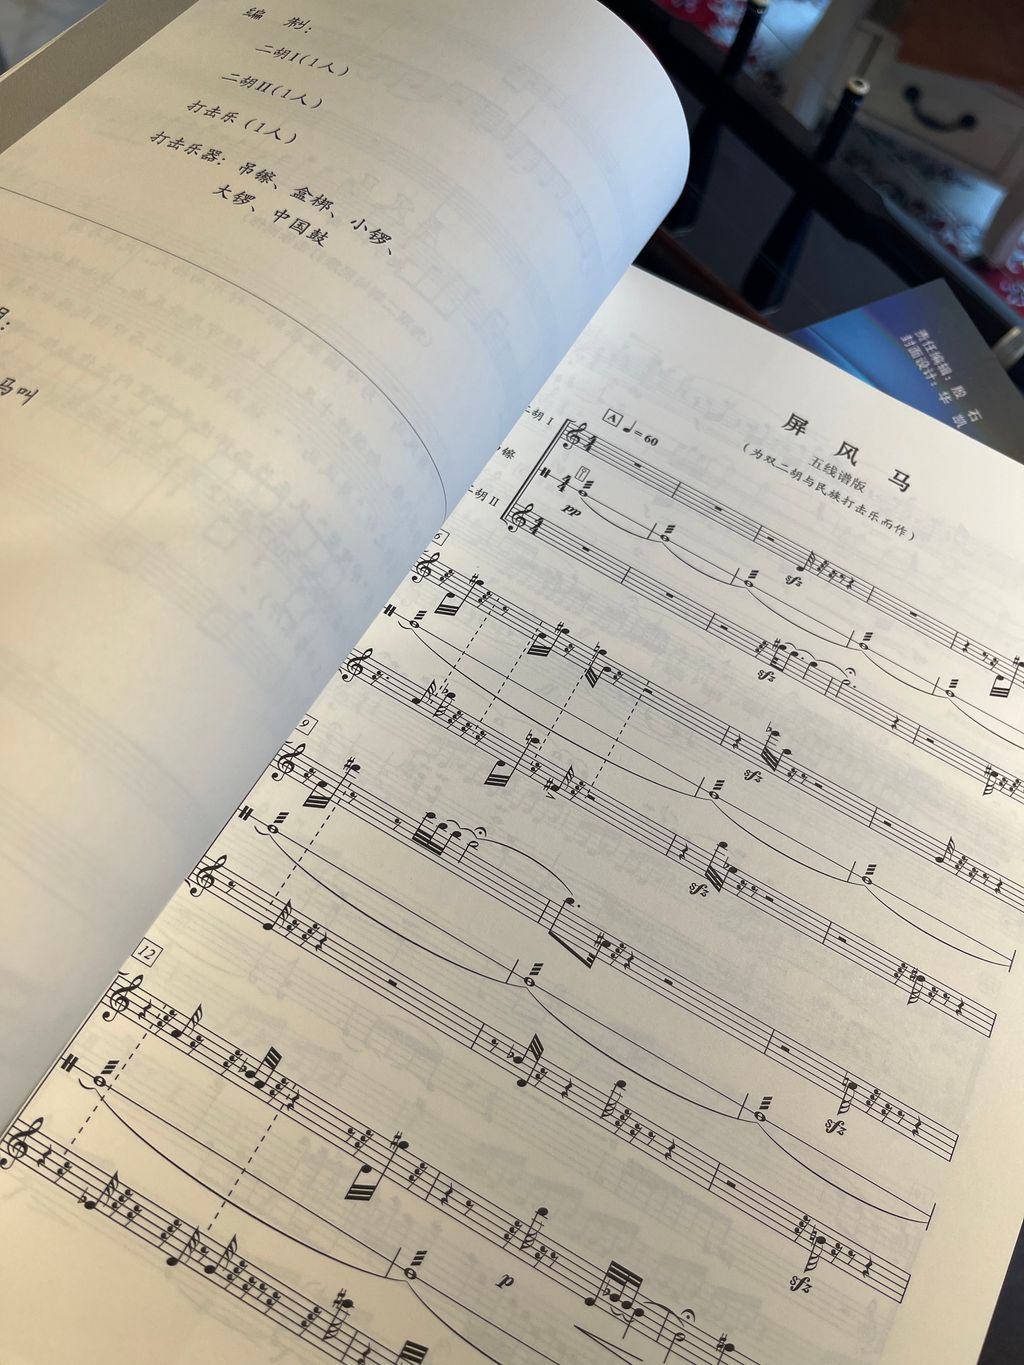 编 制：
二胡I(1人)
二胡II(1人)
打击乐（1人）
打击乐器：吊镲、盒梆、小锣、
大锣、中国鼓
马叫
屏 风 马
五线谱版
（为双二胡与民族打击乐而作）
A ♩=60
二胡 I
镲
pp
二胡 II
sfz
sfz
6
sfz
sfz
9
sfz
sfz
12
p
责任编辑：殷 石
封面设计：华 凯